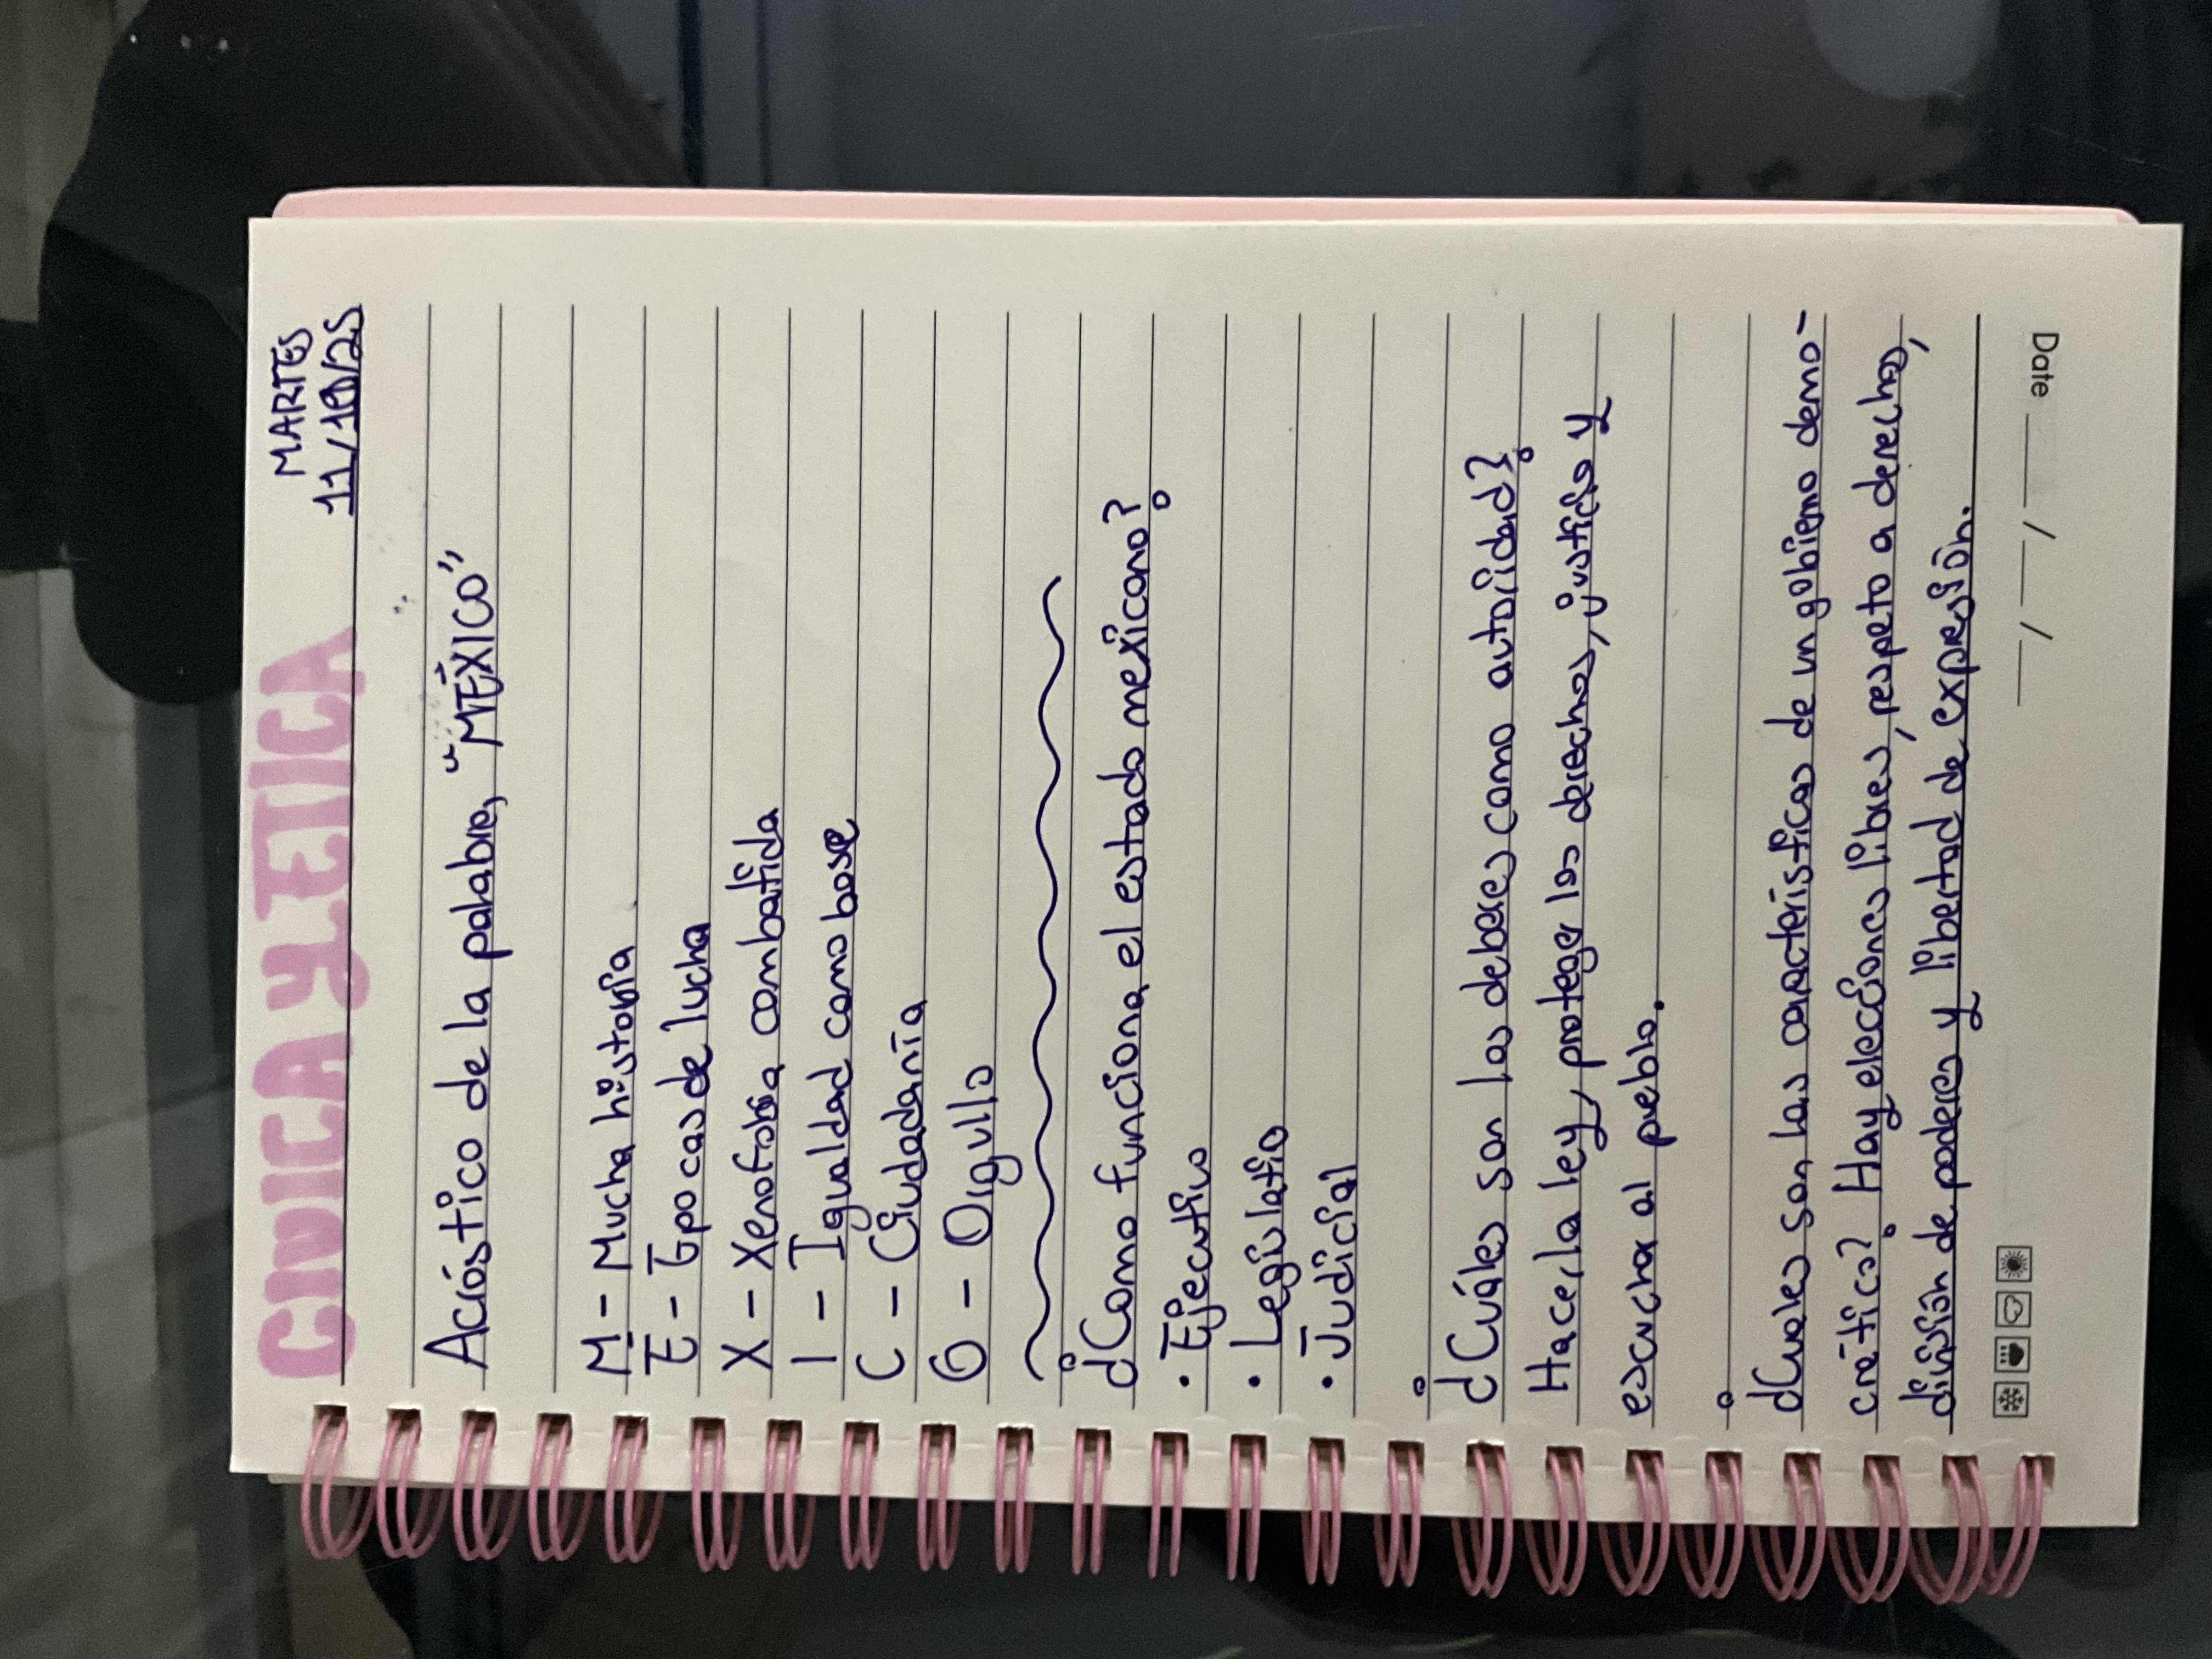 CIVICA Y ETICA
MARTES
11/10/25
Acróstico de la palabra, "MÉXICO"
M - Mucha historia
E - Épocas de lucha
X - Xenofobia combatida
I - Igualdad como base
C - Ciudadanía
O - Orgullo
¿Como funciona el estado mexicano?
• Ejecutivo
• Legislativo
• Judicial
¿Cuáles son los deberes como autoridad?
Hacer la ley, proteger los derechos, justicia y
escuchar al pueblo.
¿Cuales son las características de un gobierno demo-
crático? Hay elecciones libres, respeto a derechos,
división de poderes y libertad de expresión.
Date ___/___/___